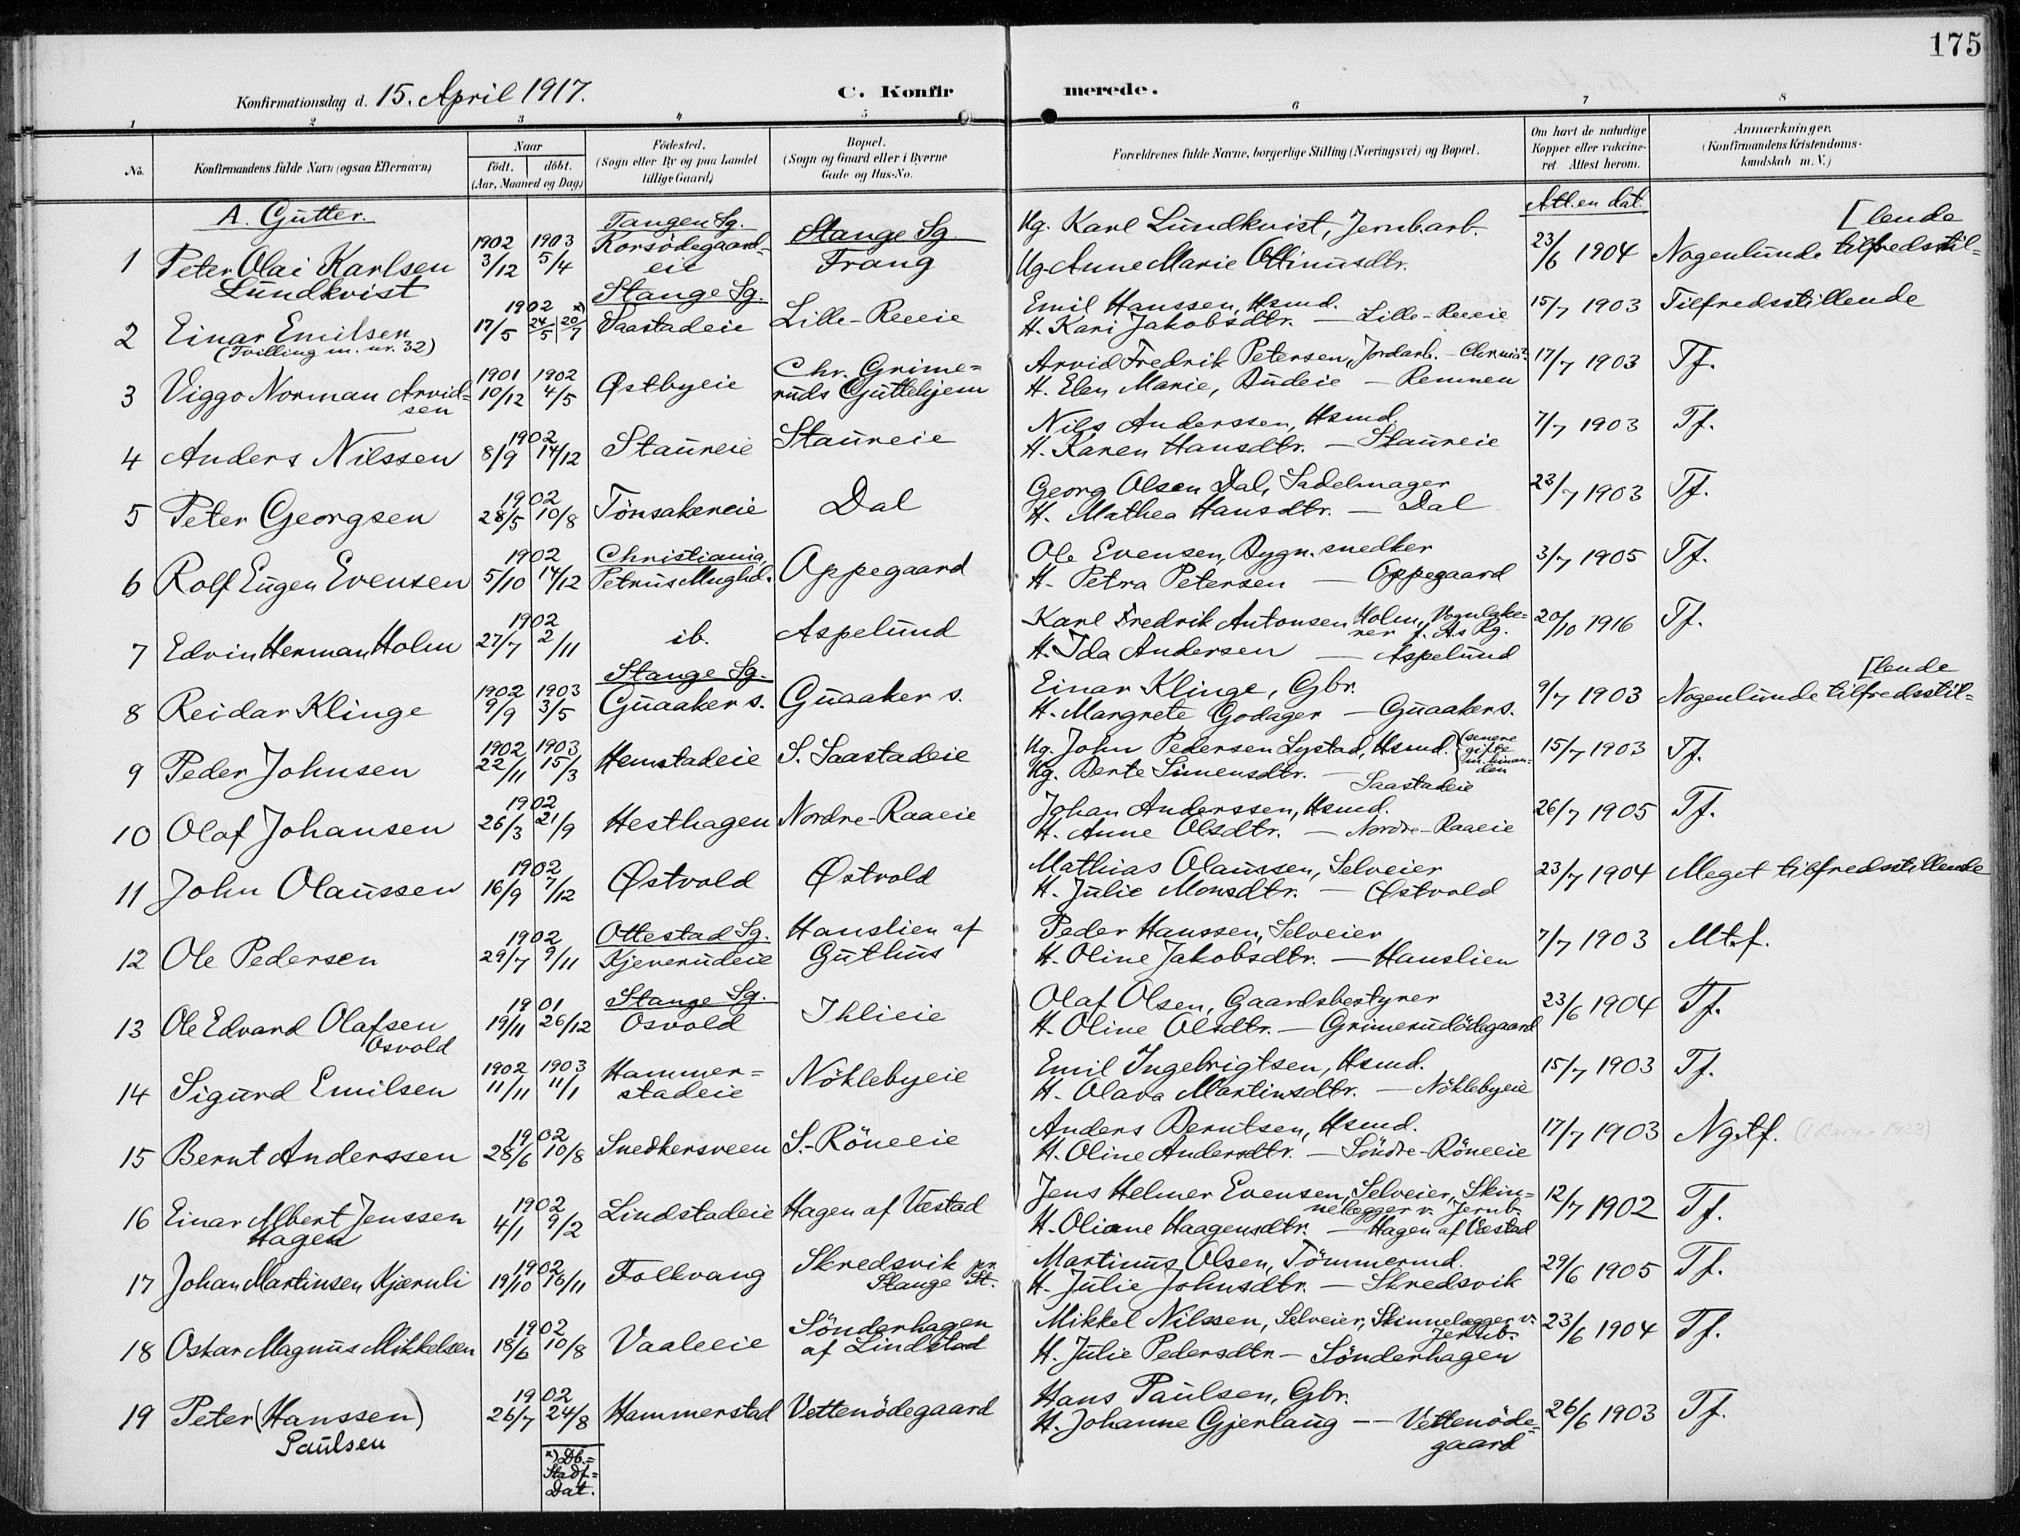 175
Konfirmationsdag d. 15. April 1917. C. Konfirmerede.
1 2 3 4 5 6 7 8
No. Konfirmandens fulde Navn (ogsaa Efternavn) Naar født. døbt. (Aar, Maaned og Dag) Fødested. (Sogn eller By og paa Landet tillige Gaard) Bopæl. (Sogn og Gaard eller i Byerne Gade og Hus-No. Forældrenes fulde Navne, borgerlige Stilling (Næringsvei) og Bopæl. Om havt de naturlige Kopper eller vakcineret Attest herom. Anmærkninger. (Konfirmandens Kristendomskundskab m. V.)
A. Gutter. Att. en dat.
1 Peter Olai Karlsen Lundkvist 1902 3/12 1903 5/4 Tangen Sg. Korsødegaard-eie Stange Sg. Frang Ug. Karl Lundkvist, Jernb.arb.
Ug. Anne Marie Ottinusdtr. 23/6 1904 Nogenlunde tilfredsstil-[lende
2 Einar Emilsen (Tvilling m. nr. 32) 1902 17/5 24/5 20/7 x) Stange Sg. Saastadeie Lille-Reeeie Emil Hanssen, Hsmd.
H. Kari Jakobsdtr. – Lille-Reeeie 15/7 1903 Tilfredsstillende
3 Viggo Norman Arvid=sen 1901 10/12 1902 4/5 Østbyeie Chr. Grime=ruds Guttehjem Arvid Fredrik Petersen, Jordarb. – Chr.nia?
H. Elen Marie, Budeie – Remmen 17/7 1903 Tf.
4 Anders Nilssen 1902 8/9 14/12 Staureie Staureie Nils Anderssen, Hsmd.
H. Karen Hansdtr. – Staureie 7/7 1903 Tf.
5 Peter Georgsen 1902 28/5 10/8 Tönsakereie Dal Georg Olsen Dal, Sadelmager
H. Mathea Hansdtr. – Dal 23/7 1903 Tf.
6 Rolf Eugen Evensen 1902 5/10 14/12 Christiania, Petrus Mnghd. Oppegaard Ole Evensen, Bygn.snedker
H. Petra Petersen – Oppegaard 3/7 1905 Tf.
7 Edvin Herman Holm 1902 27/7 2/11 ib. Aspelund Karl Fredrik Antonsen Holm, Vognlake=rer f. As Rg.
H. Ida Andersen – Aspelund 20/10 1916 Tf.
8 Reidar Klinge 1902 9/9 1903 3/5 Stange Sg. Guaaker s. Guaaker s. Einar Klinge, Gbr.
H. Margrete Godager – Guaaker s. 9/7 1903 Nogenlunde tilfredsstil=[lende
9 Peder Johnsen 1902 22/11 1903 15/3 Hemstadeie S. Saastadeie Ug. John Pedersen Lystad, Hsmd. (senere gifte m. hinanden
Ug. Berte Simensdtr. – Saastadeie 15/7 1903 Tf.
10 Olaf Johansen 1902 26/3 21/9 Hesthagen Nordre-Raaeie Johan Anderssen, Hsmd.
H. Anne Olsdtr. – Nordre-Raaeie 26/7 1905 Tf.
11 John Olaussen 1902 16/9 7/12 Østvold Østvold Mathias Olaussen, Selveier
H. Julie Monsdtr. – Østvold 23/7 1904 Meget tilfredsstillende
12 Ole Pedersen 1902 29/7 9/11 Ottestad Sg. Kjeverudeie Hanslien af Guthus Peder Hanssen, Selveier
H. Oline Jakobsdtr. – Hanslien 7/7 1903 Mt.f.
13 Ole Edvard Olafsen Osvold 1901 19/11 26/12 Stange Sg. Osvold Ihlieie Olaf Olsen, Gaardsbestyrer
H. Oline Olsdtr. – Grimerudödegaard 23/6 1904 Tf.
14 Sigurd Emilsen 1902 11/11 1903 11/1 Hammer=stadeie Nöklebyeie Emil Ingebrigtsen, Hsmd.
H. Olava Martinsdtr. – Nöklebyeie 15/7 1903 Tf.
15 Bernt Anderssen 1902 28/6 10/8 Snedkersveen S.-Röneeie Anders Berntsen, Hsmd.
H. Oline Andersdtr. – Söndre-Röneeie 17/7 1903 Ng.tf.
16 Einar Albert Jenssen Hagen 1902 4/1 9/2 Lindstadeie Hagen af Væstad Jens Helmer Evensen, Selveier, Skin=nelægger v. Jernb.
H. Oliane Haagensdtr. – Hagen af Væstad 12/7 1902 Tf.
17 Johan Martinsen Kjernli 1902 19/10 16/11 Folkvang Skredsvik pr. Stange St. Martinus Olsen, Tömmermd.
H. Julie Johnsdtr. – Skredsvik 29/6 1905 Tf.
18 Oskar Magnus Mikkelsen 1902 18/6 10/8 Vaaleeie Sönderhagen af Lindstad Mikkel Nilssen, Selveier, Skinnelægger v. Jernb.
H. Julie Pedersdtr – Sönderhagen 23/6 1904 Tf.
19 Peter (Hanssen) Paulsen 1902 26/7 24/8 Hammerstad Vettenödegaard Hans Paulsen, Gbr.
H. Johanne Gjerlaug –– Vettenöde=gaard 26/6 1903 Tf.
x) Db.=Stadf=Dat.